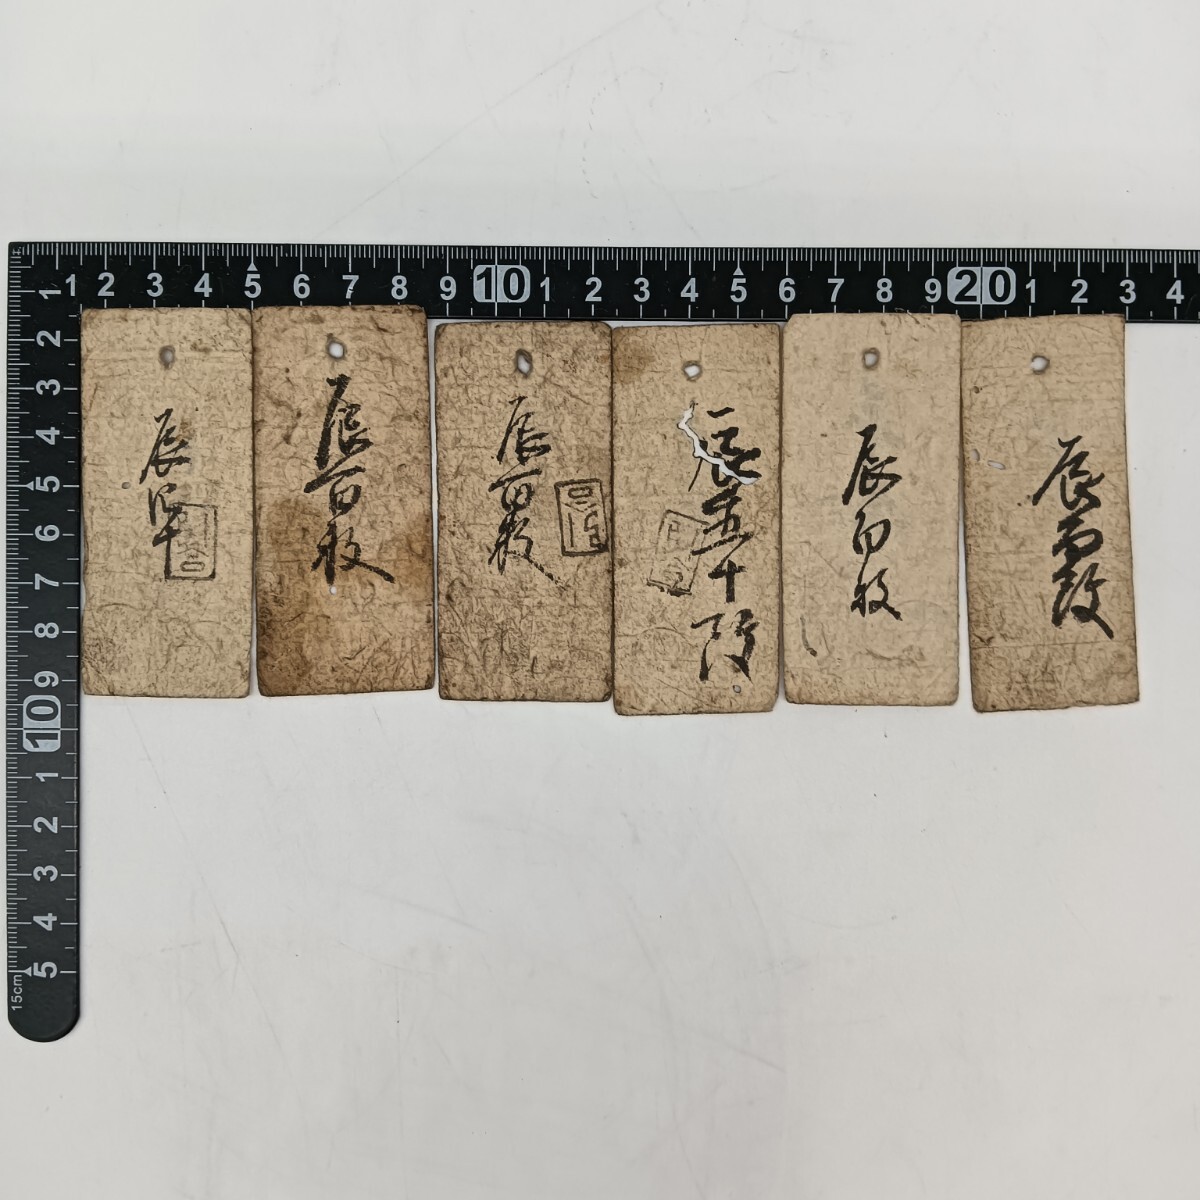 1 2 3 4 5 6 7 8 9 10 1 2 3 4 5 6 7 8 9 20 1 2 3 4
1
2
3
4
5
6
7
8
9
10
1
2
3
4
5
15cm
辰
辰百枚
辰百枚
辰五十枚
辰百枚
辰百枚